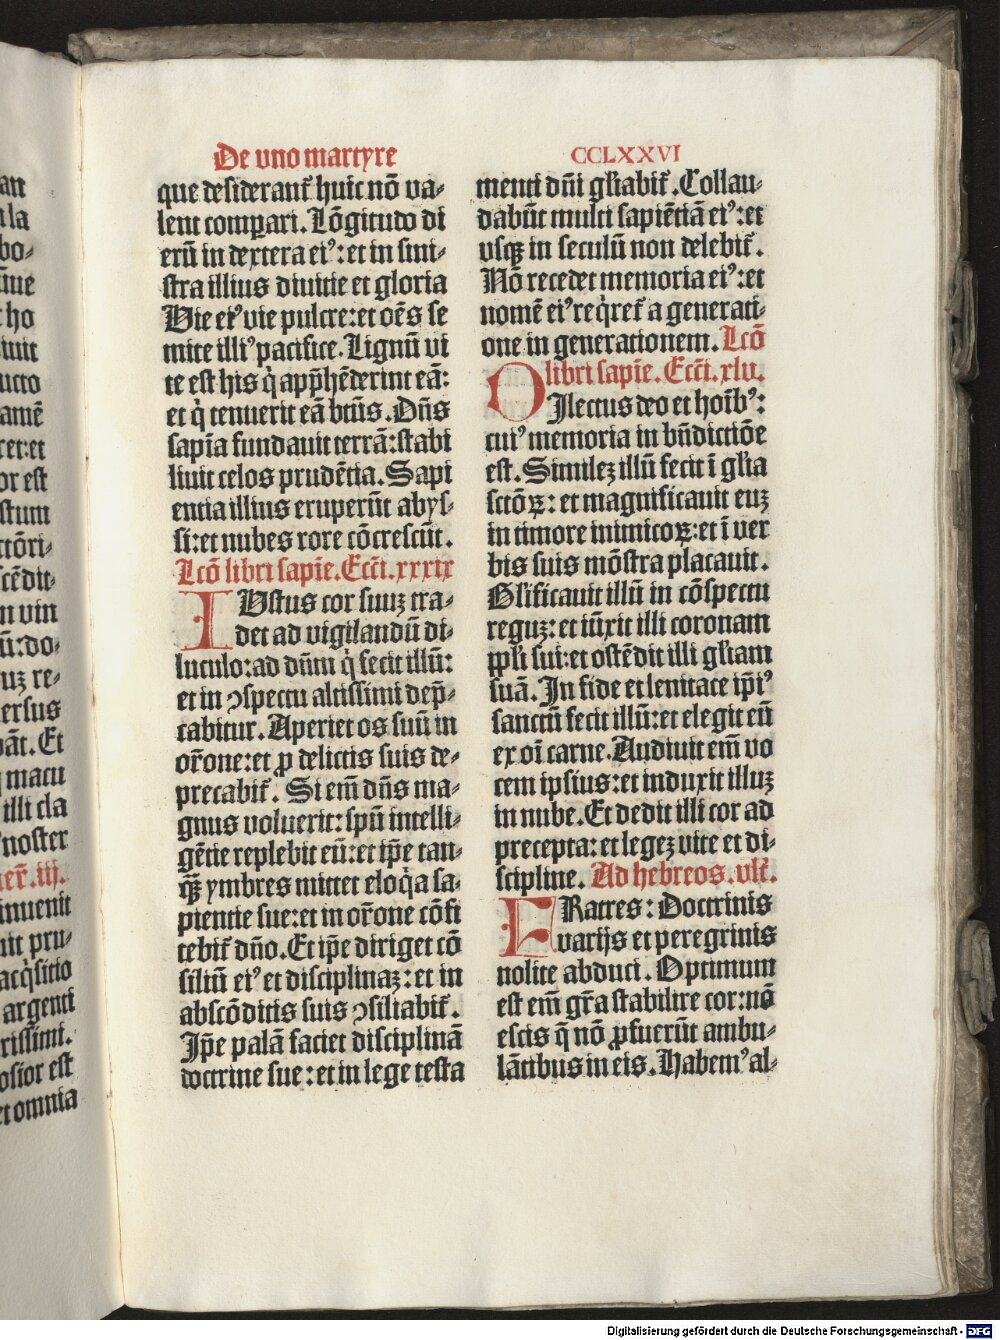 De vno martyre
CCLXXVI
que desiderant᷑ huic nō va⸗
lent comꝑari. Lōgitudo di
erū in dextera ei⁹: et in sini⸗
stra illius diuitie et gloria
Vie ei⁹ vie pulcre: et oēs se
mite illi⁹ pacifice. Lignū vi
te est his q̇ app̄hēderint eā:
et q̇ tenuerit eā btūs. Dn̄s
sapīa fundauit terrā: stabi
liuit celos prudētia. Sapi
entia illius eruperūt abys⸗
si: et nubes rore cōcrescūt.
Lcō libri sapīe. Ecci. xxxix
IVstus cor suuꝫ tra⸗
det ad vigilandū di⸗
luculo: ad dn̄m q̇ fecit illū:
et in ꝯspectu altissimi dep̄⸗
cabitur. Aperiet os suū in
or̄one: et ꝓ delictis suis de⸗
precabit᷑. Si em̄ dn̄s ma⸗
gnus voluerit: spū intelli⸗
gētie replebit eū: et ip̄e tan⸗
qꝫ̄ ymbres mittet eloq̇a sa⸗
pientie sue: et in or̄one cōfi
tebit᷑ dn̄o. Et ip̄e diriget cō
siliū ei⁹ et disciplinaꝫ: et in
abscōditis suis ꝯsiliabit᷑.
Ip̄e palā faciet disciplinā
doctrine sue: et in lege testa
menti dn̄i gl̄iabit᷑. Collau⸗
dabūt multi sapiētiā ei⁹: et
vsqꝫ in seculū non delebit᷑.
Nō recedet memoria ei⁹: et
nomē ei⁹ req̇ret᷑ a generati⸗
one in generationem. Lcō
libri sapīe. Ecci. xlv.
DIlectus deo et hoīb⁹:
cui⁹ memoria in bn̄dictiōe
est. Simileꝫ illū fecit ī gl̄ia
sctōꝝ: et magnificauit euꝫ
in timore inimicoꝝ: et ī ver
bis suis mōstra placauit.
Gl̄ificauit illū in cōspectu
reguꝫ: et iūxit illi coronam
ppl̄i sui: et ostēdit illi gl̄iam
suā. In fide et lenitate ip̄i⁹
sanctū fecit illū: et elegit eū
ex oī carne. Audiuit em̄ vo
cem ipsius: et induxit illuꝫ
in nube. Et dedit illi cor ad
precepta: et legeꝫ vite et di⸗
scipline. Ad hebreos. vlt᷑.
FRatres: Doctrinis
varijs et peregrinis
nolite abduci. Optimum
est em̄ gr̄a stabilire cor: nō
escis q̄ nō ꝓfuerūt ambu⸗
lātibus in eis. Habem⁹ al⸗
Digitalisierung gefördert durch die Deutsche Forschungsgemeinschaft - DFG